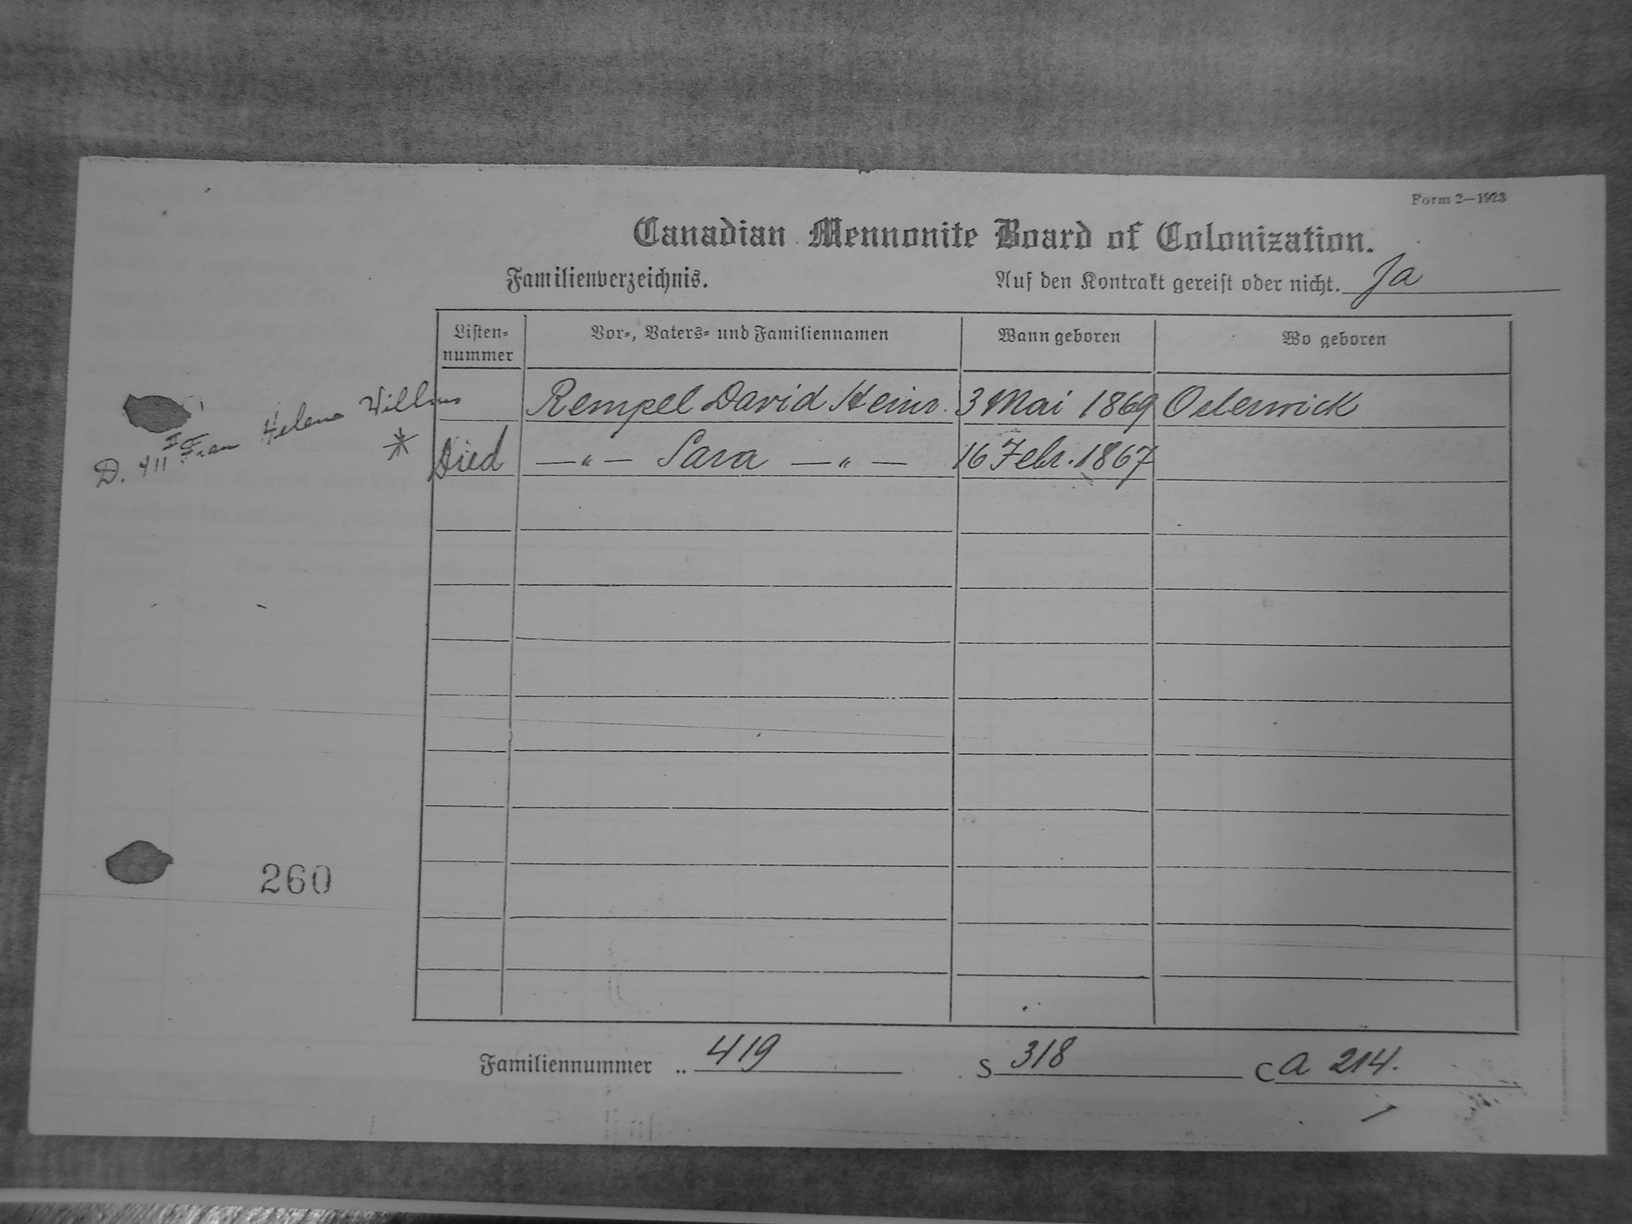 Form 2—1923
Canadian Mennonite Board of Colonization.
Familienverzeichnis. Auf den Kontrakt gereist oder nicht. Ja
Listen-nummer Vor-, Vaters- und Familiennamen Wann geboren Wo geboren
Rempel David Heinr. 3 Mai 1869 Osterwick
D. 411 II Frau Helena Willms
* Died —"— Sara —"— 16 Febr. 1867
260
Familiennummer .. 419 S 318 C A 214.